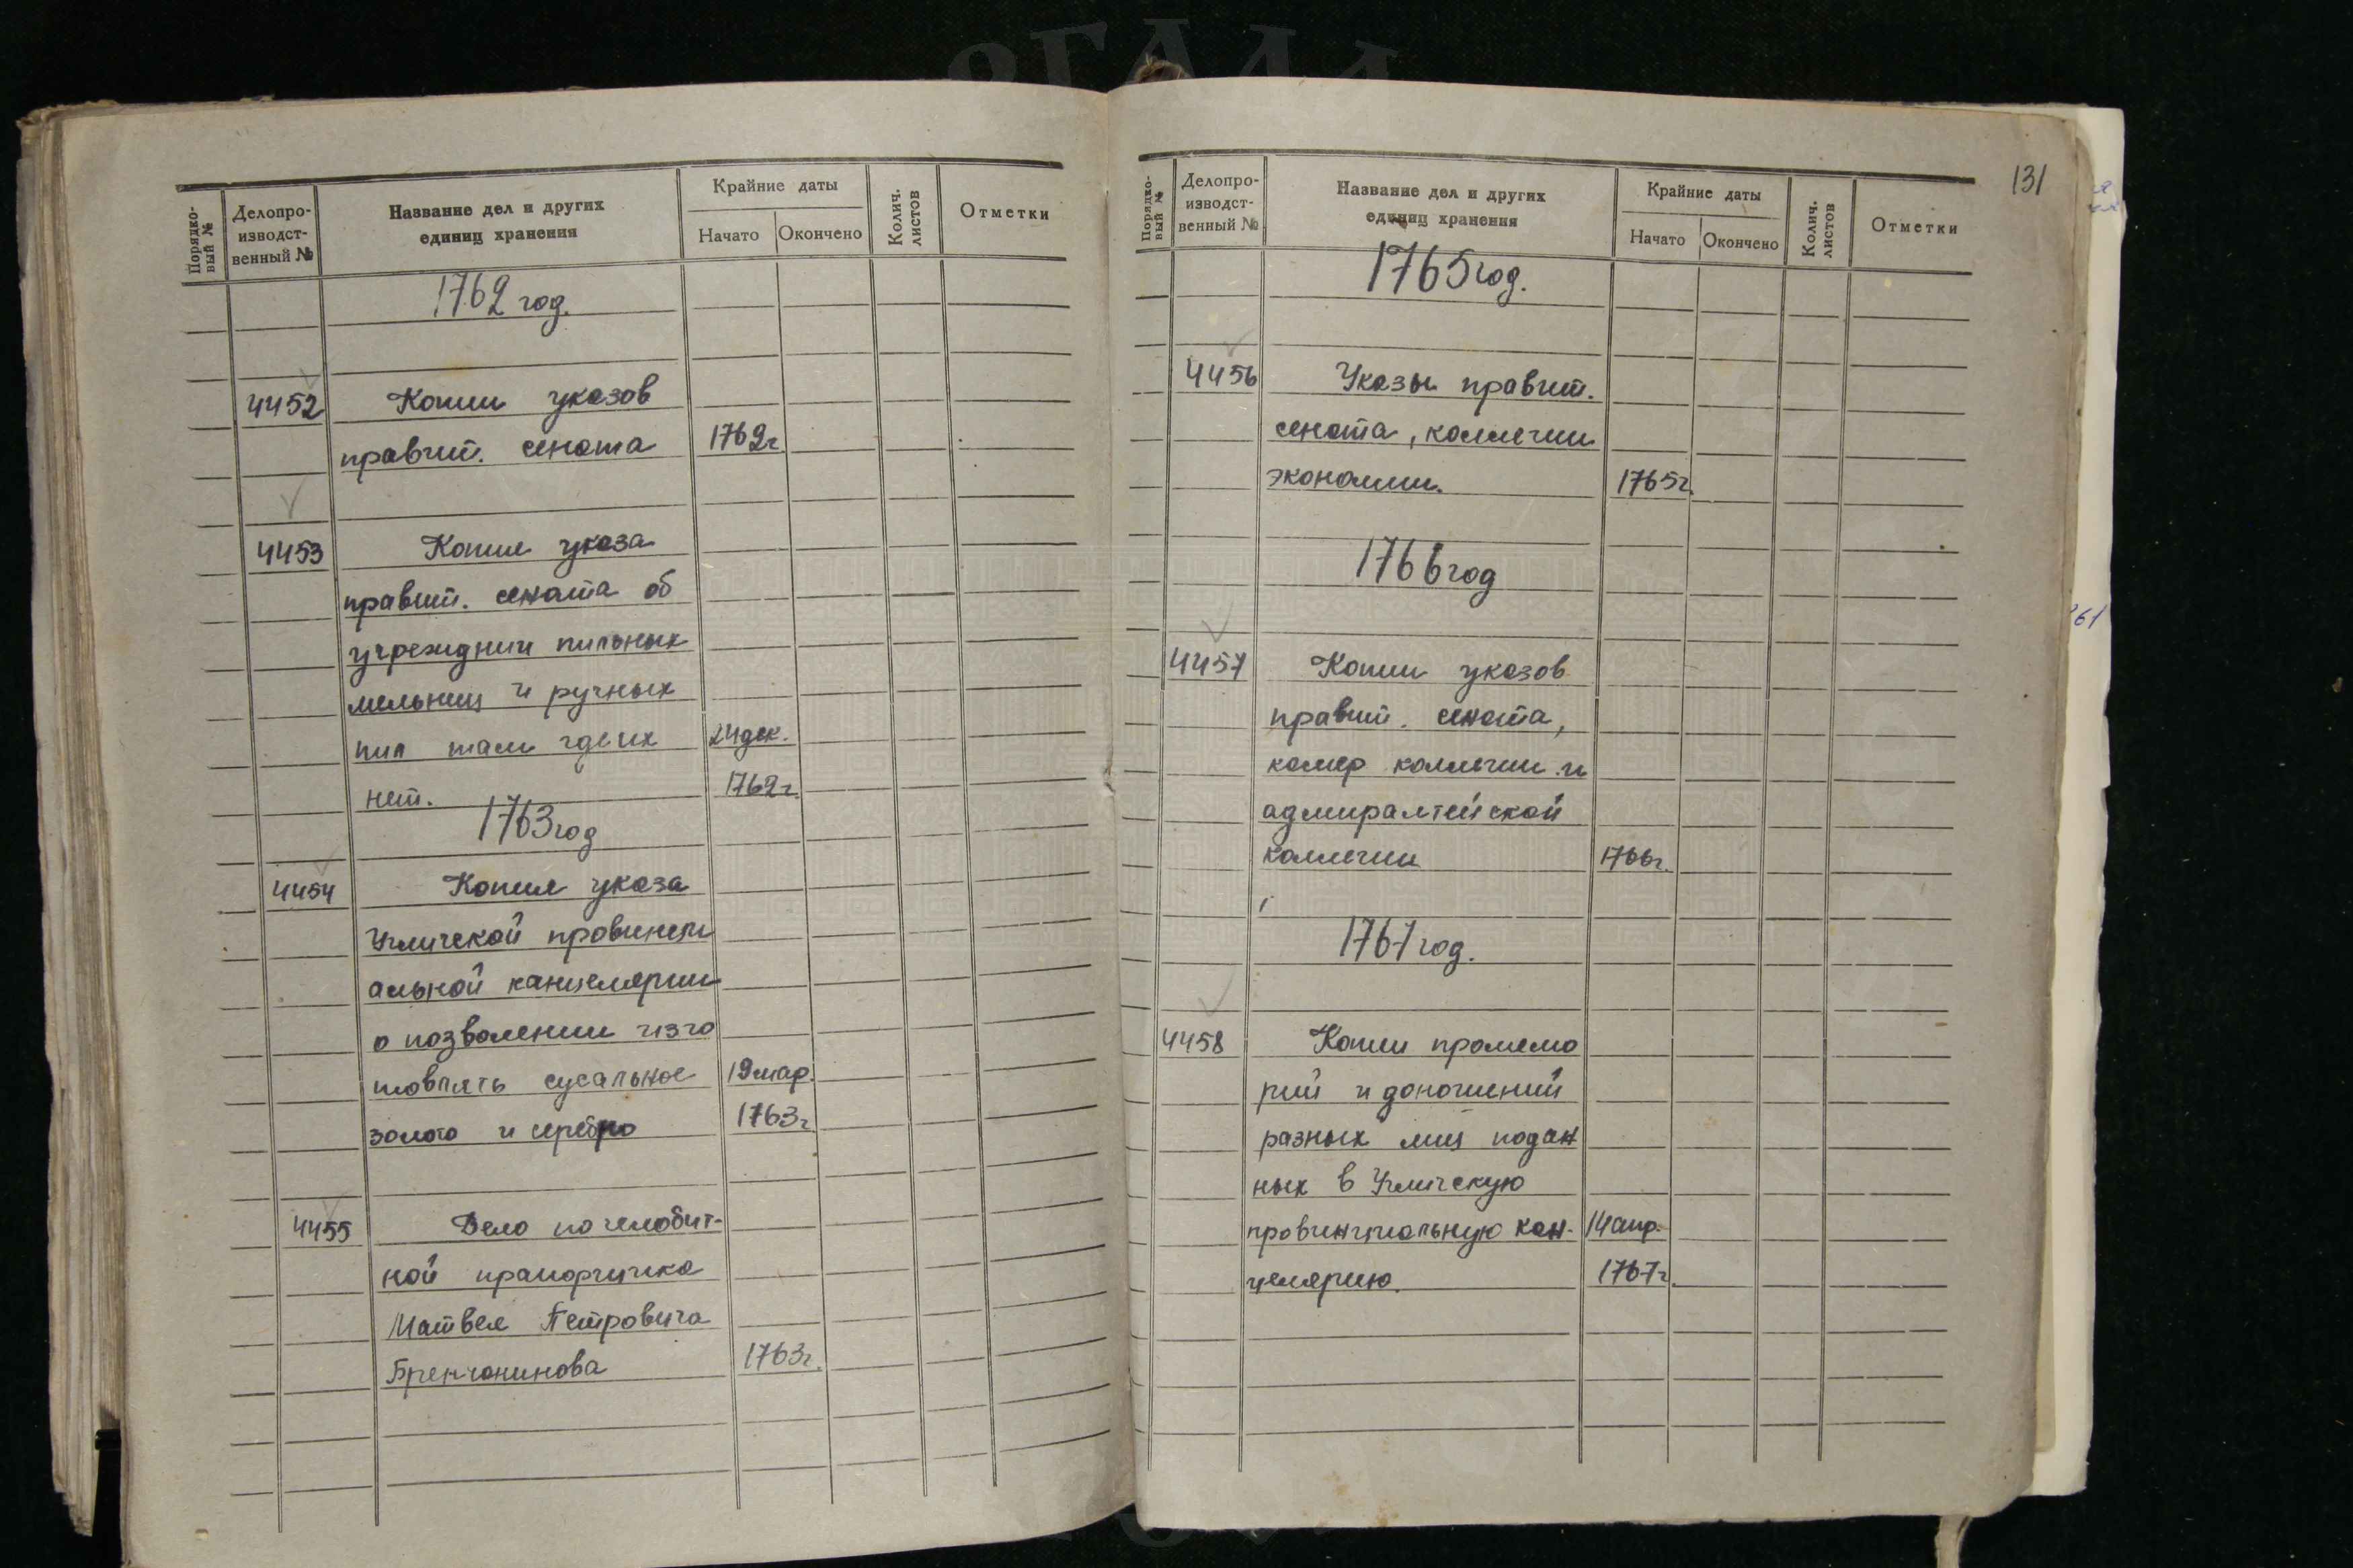 Порядко-
вый №
Делопро-
изводст-
венный №
Название дел и других
единиц хранения
Крайние даты
Начато
Окончено
Колич.
листов
Отметки
1762 год.
4452
Копии указов
правит. сената
1762г
4453
Копия указа
правит. сената об
учрежднии пильных
мельниц и ручных
пил там где их
24 дек.
нет.
1762г.
1763 год
4454
Копия указа
Угличской провинци
альной канцелярии
о позволении изго
товлять сусальное
19 мар.
золото и серебро
1763г
4455
Дело по челобит-
ной прапорщика
Матвея Петровича
Бренчанинова
1763г.
131
Порядко-
вый №
Делопро-
изводст-
венный №
Название дел и других
единиц хранения
Крайние даты
Начато
Окончено
Колич.
листов
Отметки
1765 год.
4456
Указы правит.
сената, коллегии
экономии.
1765г.
1766 год
4457
Копии указов
правит. сената,
камер коллегии и
адмиралтейской
коллегии
1766г.
1767 год.
4458
Копии промемо
рий и доношений
разных лиц подан
ных в Угличскую
провинциальную кан-
14 апр.
целярию.
1767г.
61